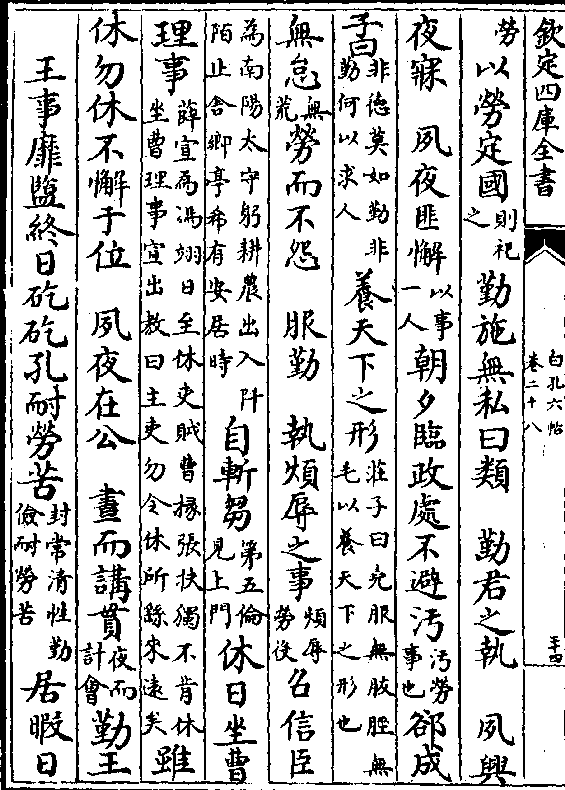 欽定四庫全書
白孔六帖
卷二十八
二十四
勞以勞定國則祀之 勤施無私曰類 勤君之執 夙興
夜寐 夙夜匪懈以事一人 朝夕臨政處不避汚汚勞事也 郤成
子曰非德莫如勤非勤何以求人 養天下之形莊子曰堯股無胈脛無毛以養天下之形也
無怠無荒 勞而不怨 服勤 執煩辱之事煩辱勞役 召信臣
為南陽太守躬耕農出入阡陌止舍鄉亭稀有安居時 自斬芻第五倫見上門 休日坐曹
理事薛宣為馮翊日至休吏賊曹掾張扶獨不肯休坐曹理事宣出教曰主吏勿令休所繇來遠矣 雖
休勿休不懈于位 夙夜在公 晝而講貫夜而計會 勤王
王事靡盬終日矻矻孔耐勞苦封常清性勤儉耐勞苦 居暇日